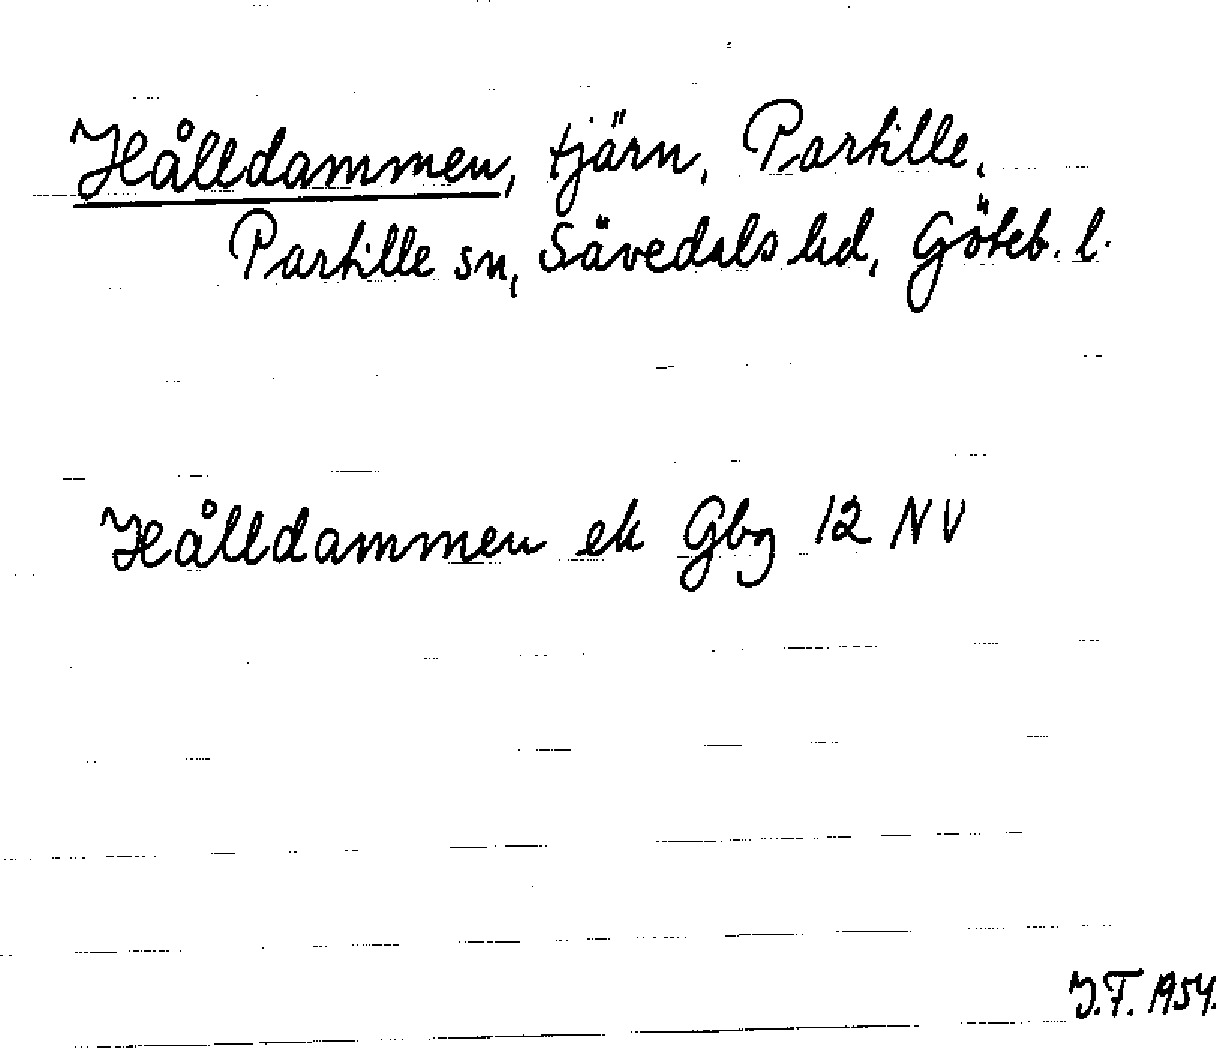 Hålldammen, tjärn, Partille,
Partille sn, Sävedals hd, Göteb. l.
Hålldammen ek Gbg 12 NV
I.F. 1954.